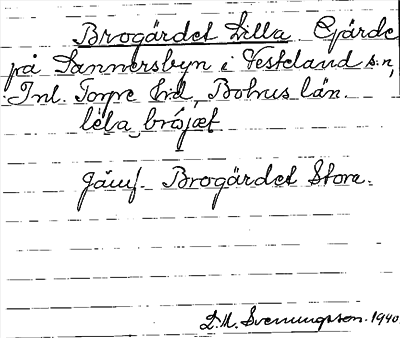 Brogärdet Lilla. Gjärde
på Tannersbyn i Västeland s:n,
Inl. Torpe hd, Bohus län.
lèla brójæt
Jämf. Brogärdet Stora.
D.M. Svenungsson. 1940.